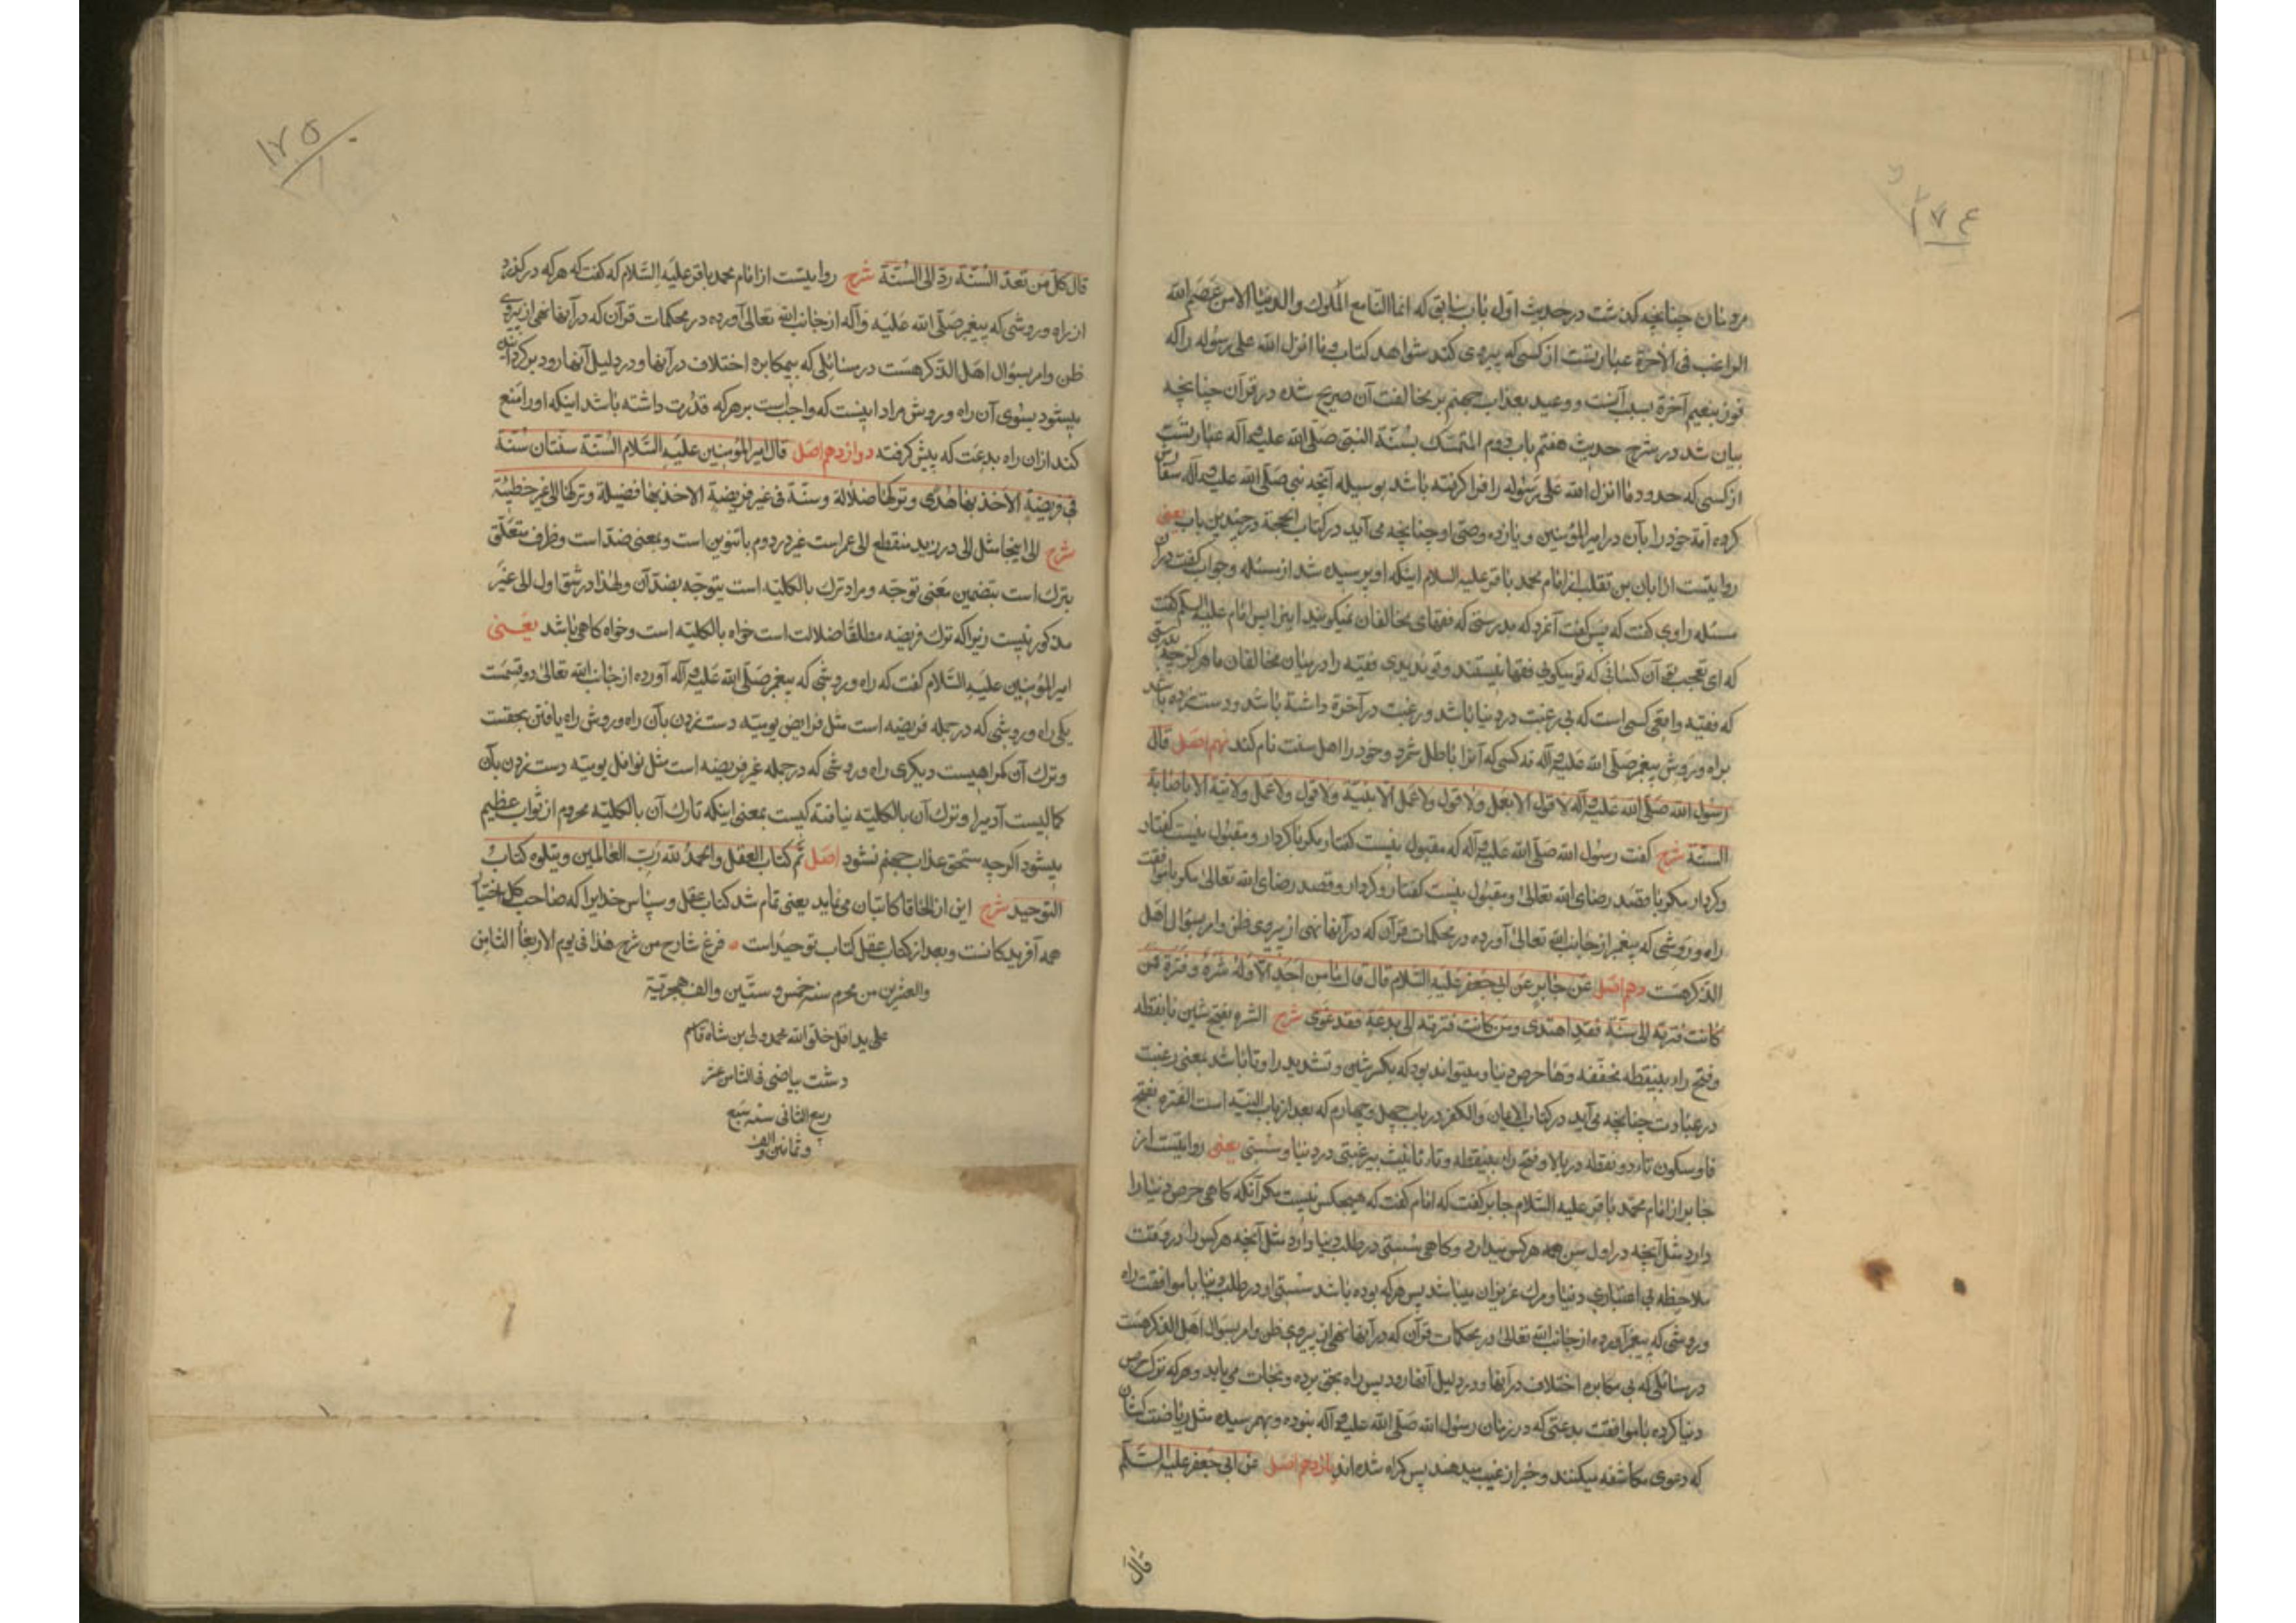 ١٧٤
مردمان چنانچه گذشت در حدیث اول باب سابق که انما الناس مع الملوک والدنیا الا من عصم الله
الراغب فی الآخرة عبارتست از کسی که پیروی کند شواهد کتاب و ما انزل الله علی رسوله را که
فوز بنعیم آخرة بسبب آنست و وعید بعذاب جهنم بر مخالفت آن صریح شده در قرآن چنانچه
بیان شد در شرح حدیث هفتم باب دوم المتمسک بسنّة النبی صلّی الله علیه وآله عبارتست
از کسی که حدود ما انزل الله علی رسوله را فرا گرفته باشد بوسیله آنچه نبی صلّی الله علیه وآله سفارش
کرده امّة خود را بآن در امیرالمؤمنین و یازده وصی او چنانچه می آید در کتاب الحجة در چندین باب یعنی
روایتست از ابان بن تغلب از امام محمد باقر علیه السلام اینکه او پرسیده شد از مسئله و جواب گفت در آن
مسئله راوی گفت که پس گفت آنمرد که بدرستی که فقهای مخالفان نمیگویند این را پس امام علیه السلم گفت
که ای تعجب آن کسانی که تو میگویی فقها نیستند و تو ندیدی فقیه را در میان مخالفان ما هرگز بدرستی
که فقیه واقعی کسی است که بی رغبت در دنیا باشد و رغبت در آخرة داشته باشد و دست زده باشد
براه و روش پیغمبر صلّی الله علیه وآله نه کسی که آنرا باطل شمرد و خود را اهل سنت نام کند نهم اصل قال
رسول الله صلّی الله علیه وآله لا قول الا بعمل ولا قول ولا عمل الا بنیّة ولا قول ولا عمل ولا نیّة الا باصابة
السنّة شرح گفت رسول الله صلّی الله علیه وآله که مقبول نیست گفتار مگر با کردار و مقبول نیست گفتار
و کردار مگر با قصد رضای الله تعالی و مقبول نیست گفتار و کردار و قصد رضای الله تعالی مگر با موافقت
راه و روشی که پیغمبر از جانب الله تعالی آورده در محکمات قرآن که در آنها نهی از پیروی ظن و امر بسؤال اهل
الذکر هست دهم اصل عن جابر عن ابی جعفر علیه السلام قال قال ما من احد الا وله شرة و فترة فمن
کانت فترته الی سنّة فقد اهتدی و من کانت فترته الی بدعة فقد غوی شرح الشره بفتح شین با نقطه
و فتح راء بینقطه مخففه و ها حرص دنیا و میتواند بود که بکسر شین و تشدید را و تا باشد بمعنی رغبت
در عبادت چنانچه می آید در کتاب الایمان والکفر در باب چهل و چهارم که بعد از باب النیّه است الفتره بفتح
فا و سکون تاء دو نقطه در بالا و فتح راء بینقطه و تاء تانیث بیرغبتی در دنیا و سستی یعنی روایتست از
جابر از امام محمد باقر علیه السلام جابر گفت که امام گفت که هیچکس نیست مگر آنکه گاهی حرص دنیا را
دارد مثل آنچه در اول سن همه هرکس میدارد و گاهی سستی در طلب دنیا دارد مثل آنچه هرکس را در وقت
ملاحظه بی اعتباری دنیا و مرگ عزیزان میباشد پس هرکه بوده باشد سستی او در طلب دنیا با موافقت راه
و روشی که پیغمبر آورده از جانب الله تعالی در محکمات قرآن که در آنها نهی از پیروی ظن و امر بسؤال اهل الذکر هست
در مسائلی که بی مکابره اختلاف در آنها و در دلیل آنها رود پس راه بحق برده و نجات می یابد و هرکه ترک حرص
دنیا کرده با موافقت بدعتی که در زمان رسول الله صلّی الله علیه وآله نبوده و بهم رسیده مثل ریاضت کشان
که دعوی مکاشفه میکنند و خبر از غیب میدهند پس گمراه شده اند یازدهم اصل عن ابی جعفر علیه السّلم
قال
١٧٥
قال کل من تعدّ السّنّة ردّ الی السّنّة شرح روایتست از امام محمد باقر علیه السّلام که گفت که هرکه درگذرد
از راه و روشی که پیغمبر صلّی الله علیه وآله از جانب الله تعالی آورده در محکمات قرآن که در آنها نهی از پیروی
ظن و امر بسؤال اهل الذکر هست در مسائلی که بیمکابره اختلاف در آنها و در دلیل آنها رود برگردانیده
میشود بسوی آن راه و روش مراد اینست که واجب است بر هرکه قدرت داشته باشد اینکه او را منع
کند از آن راه بدعت که پیش گرفته دوازدهم اصل قال امیرالمؤمنین علیه السّلام السّنّة سنّتان سنّة
فی فریضة الاخذ بها هدی و ترکها ضلالة و سنّة فی غیر فریضة الاخذ بها فضیلة و ترکها الی غیر خطیئة
شرح الی اینجا مثل الی در زید منقطع الی عمر است غیر در دوم با تنوین است و بمعنی ضد است و ظرف متعلّق
بترک است بتضمین معنی توجّه و مراد ترک بالکلیّه است بتوجّه بضد آن ولهذا در شق اول الی غیر
مذکور نیست زیرا که ترک فریضه مطلقا ضلالت است خواه بالکلیّه است و خواه گاهی باشد یعنی
امیرالمؤمنین علیه السّلام گفت که راه و روشی که پیغمبر صلّی الله علیه وآله آورده از جانب الله تعالی دو قسمست
یکی راه و روشی که در جمله فریضه است مثل فرایض یومیّه دست زدن بآن راه و روش راه یافتن بحقست
و ترک آن گمراهیست دیگری راه و روشی که در جمله غیر فریضه است مثل نوافل یومیّه دست زدن بآن
کمالیست آدمیرا و ترک آن بالکلیّه نیافتة کیست بمعنی اینکه تارک آن بالکلیّه محروم از ثواب عظیم
میشود اگرچه مستحق عذاب جهنم نشود اصل تمّ کتاب العقل والحمد لله ربّ العالمین ویتلوه کتاب
التوحید شرح این از الحاقا کاتبان می نماید یعنی تمام شد کتاب عقل و سپاس خدایرا که صاحب کل اختیار
همه آفریدگانست و بعد از کتاب عقل کتاب توحید است فرغ شارح من شرح هذا فی یوم الاربعا الثامن
والعشرین من محرم سنه خمس و ستّین والف هجریّة
علی ید اقل خلق الله محمد ولی بن شاه قاسم
دشت بیاضی فی الثامن عشر
ربیع الثانی سنه سبع
و ثمانین والف